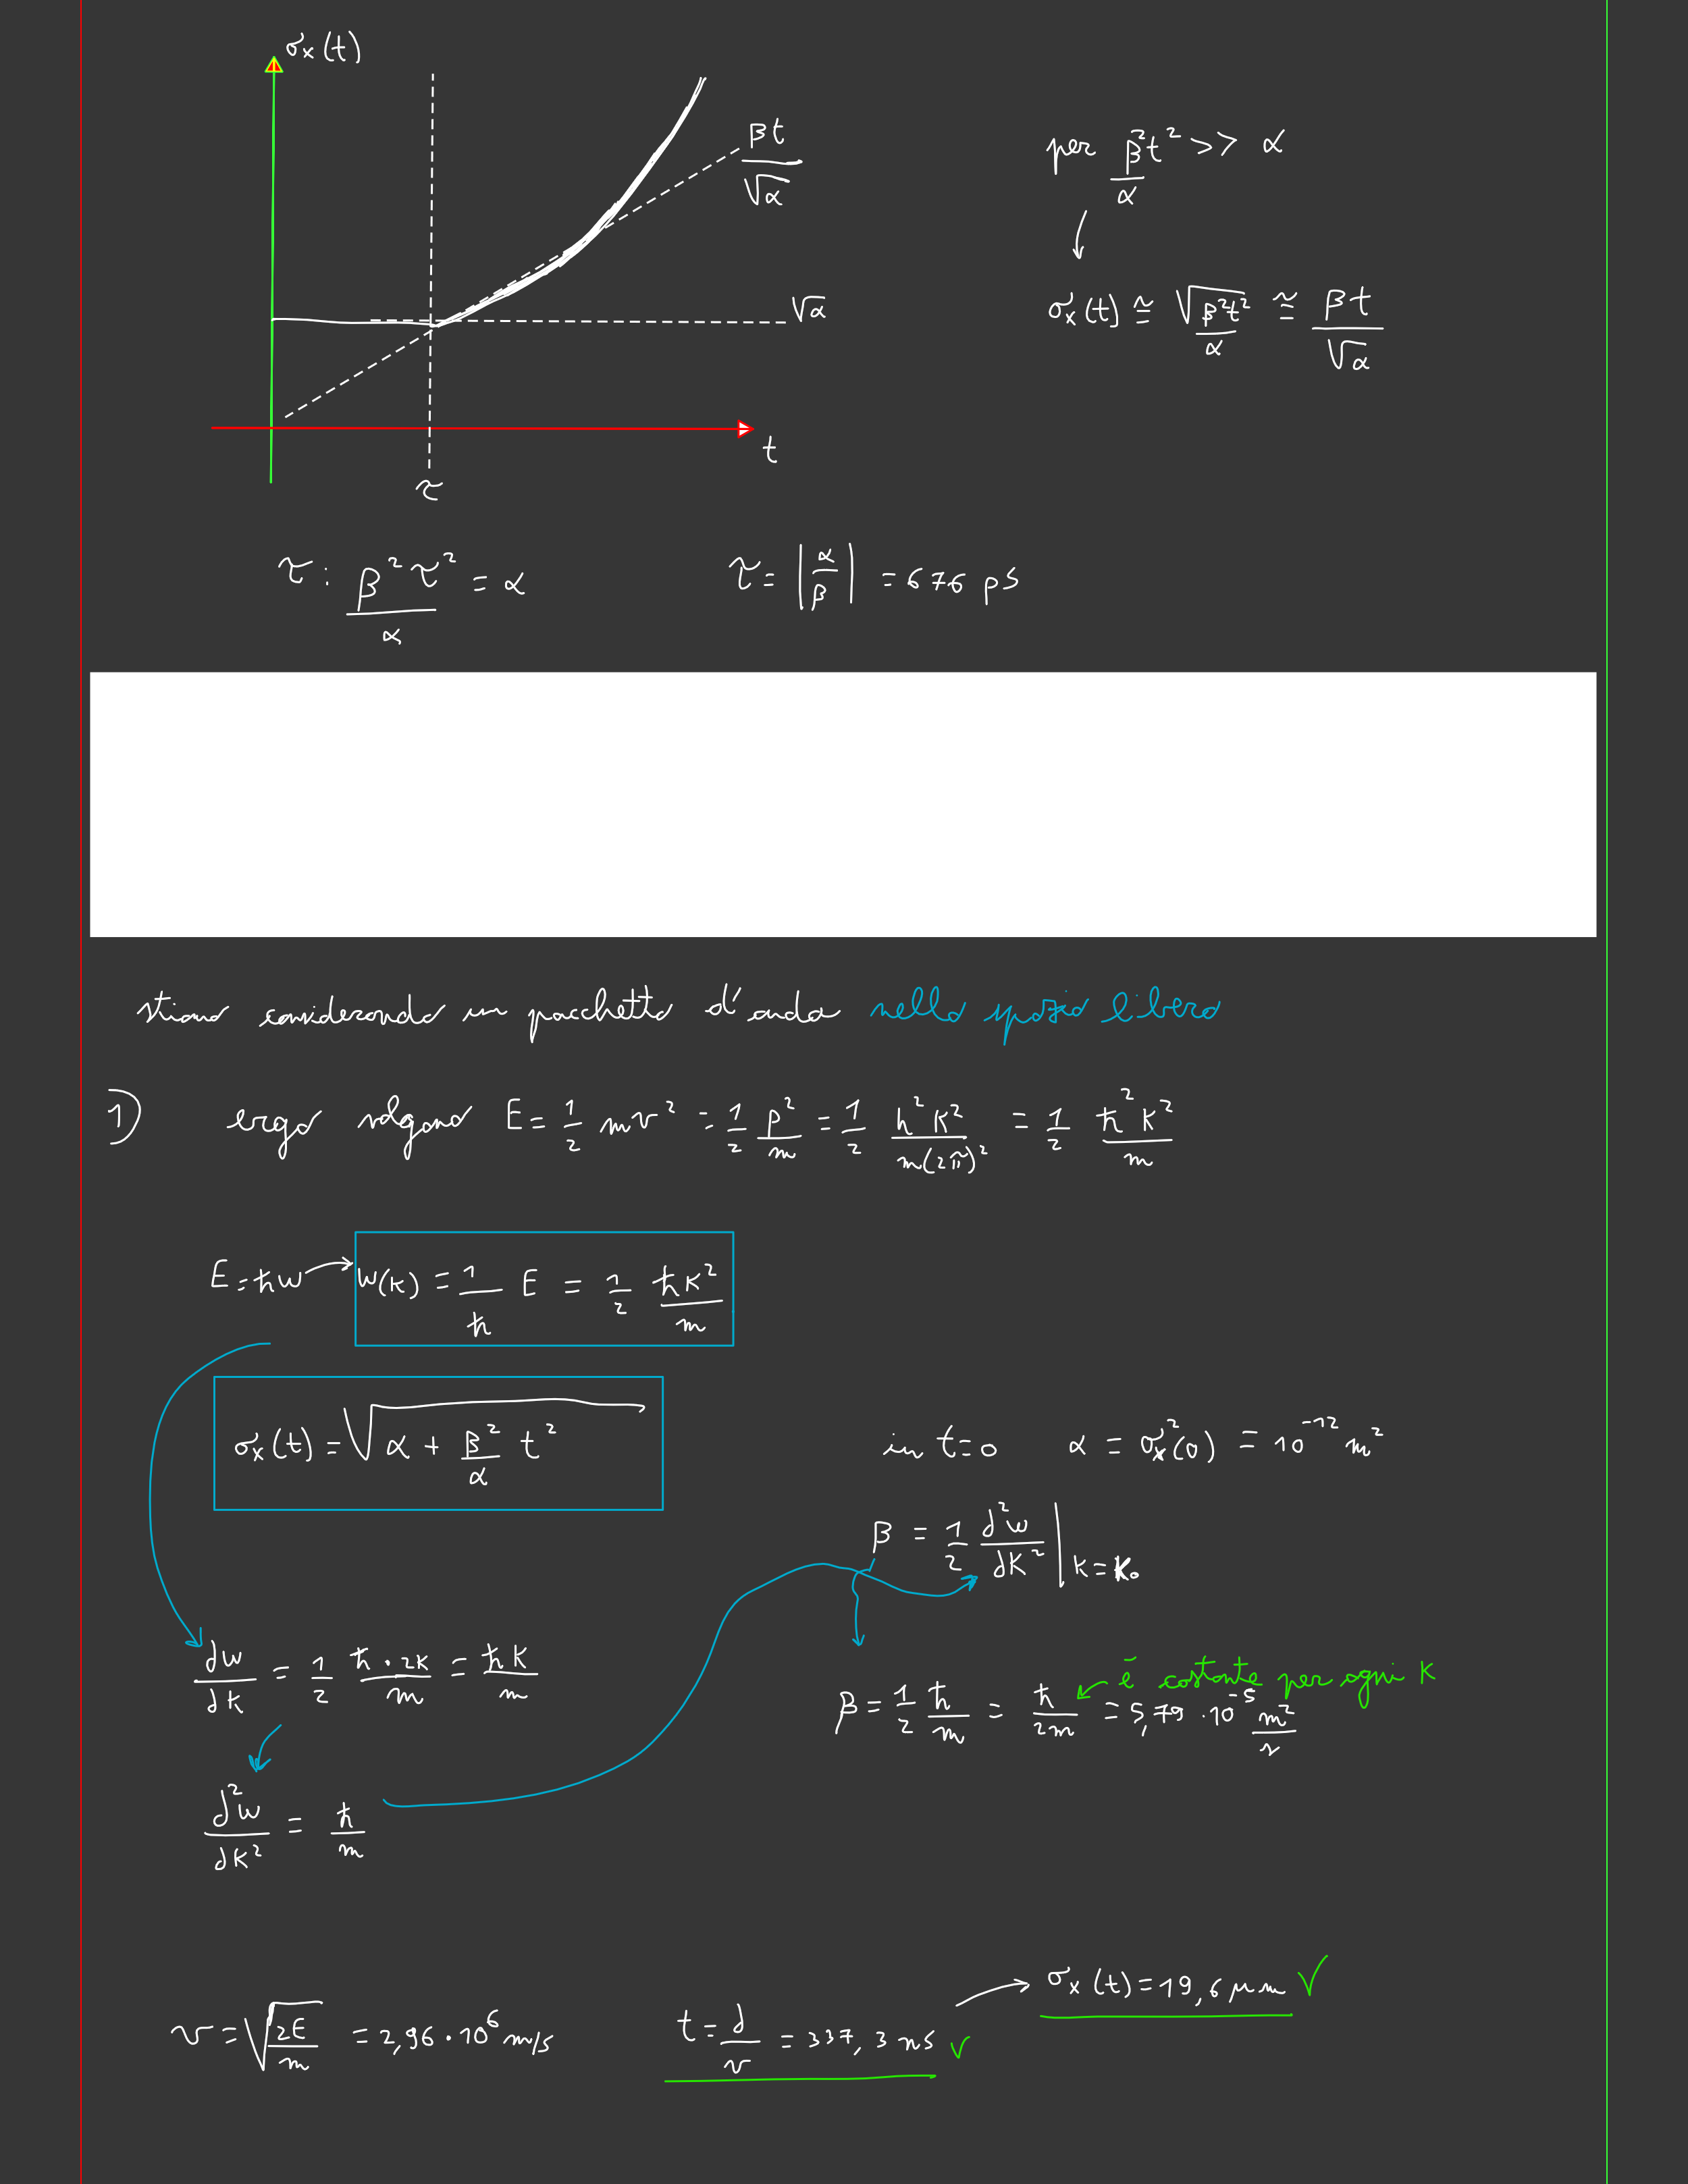 σx(t)
βt/√α
√α
t
τ
per β²t²/α >> α
σx(t) ≅ √(β²t²/α) ≅ βt/√α
τ: β²τ²/α = α
τ = |α/β| = 676 ps
stiamo considerando un pacchetto d'onda nello spazio libero
1) energ E = 1/2 mv² = 1/2 p²/m = 1/2 h²K²/m(2π)² = 1/2 ħ²K²/m
E = ħw → w(k) = 1/ħ E = 1/2 ħk²/m
σx(t) = √(α + β²/α t²)
in t=0 α = σx²(0) = 10⁻¹² m²
β = 1/2 d²w/dK² | k=k₀
dw/dk = 1/2 ħ·2k/m = ħk/m
β = 1/2 ħ/m = ħ/2m = 5,79 · 10⁻⁵ m²/s
è costante per ogni k
d²w/dK² = ħ/m
v = √(2E/m) = 2,96 · 10⁶ m/s
t = d/v = 337,3 ns ✓
σx(t) = 19,6 μm ✓